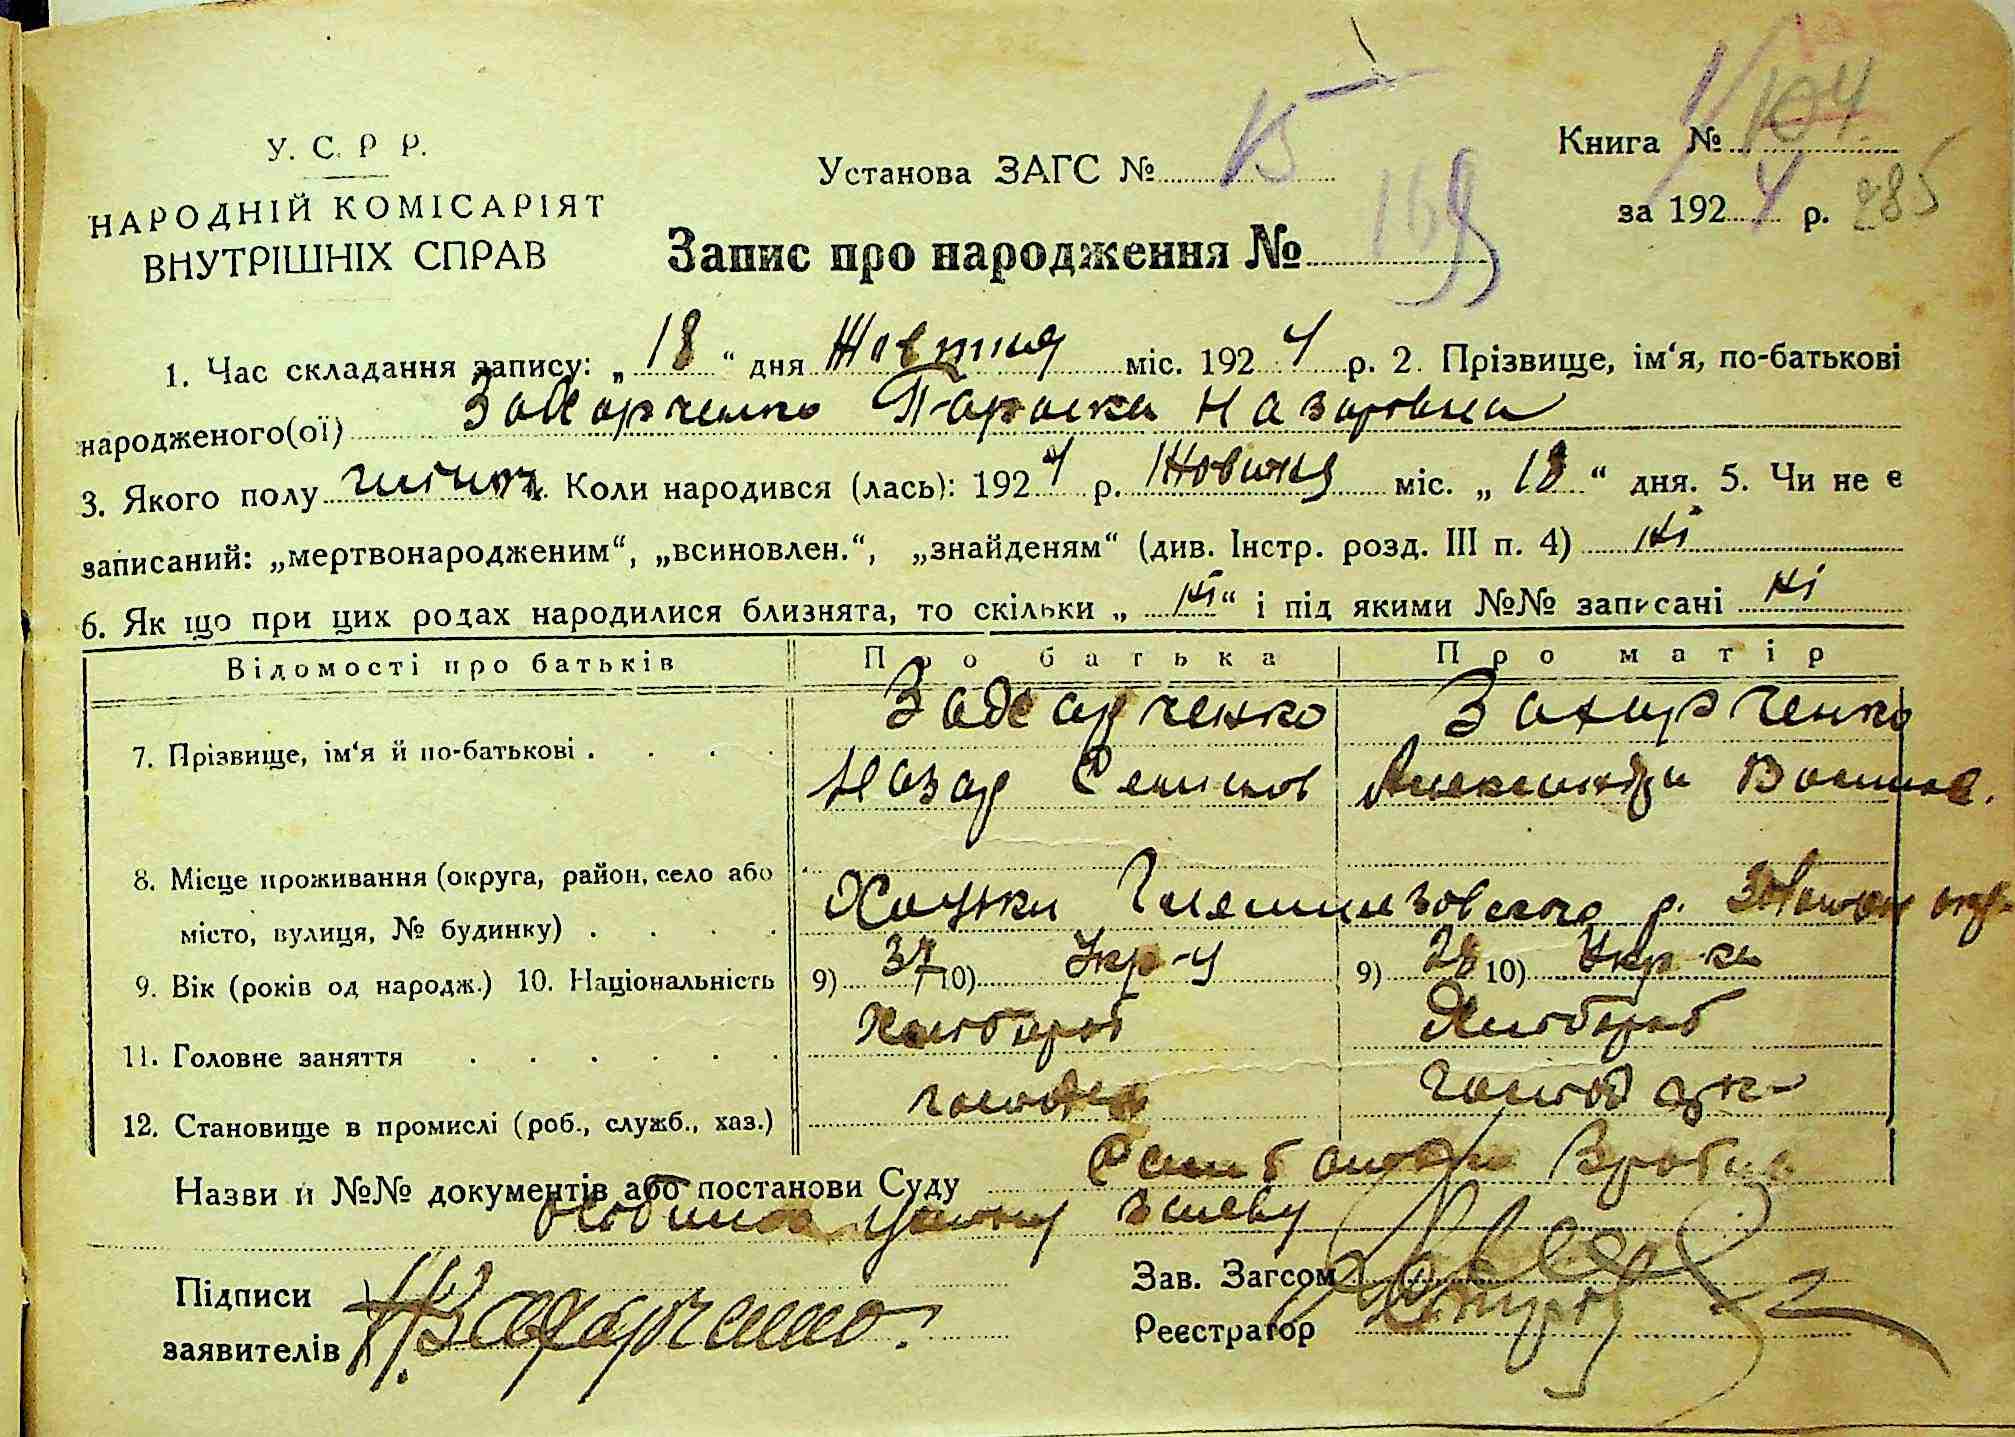 У. С. Р Р.
НАРОДНІЙ КОМІСАРІЯТ
ВНУТРІШНІХ СПРАВ
Установа ЗАГС № 15
Книга № 104
за 1924 р. 285
Запис про народження № 169
1. Час складання запису: „18“ дня Жовтня міс. 1924 р. 2. Прізвище, ім‘я, по-батькові
народженого(ої) Захарченко Параска Назаровна
3. Якого полу жіноч. Коли народився (лась): 1924 р. Жовтня міс. „18“ дня. 5. Чи не є
записаний: „мертвонародженим“, „всиновлен.“, „знайденям“ (див. Інстр. розд. III п. 4) Ні
6. Як що при цих родах народилися близнята, то скільки „Ні“ і під якими №№ записані Ні
Відомості про батьків Про батька Про матір
7. Прізвище, ім‘я й по-батькові . . . . Захарченко Захарченко
Назар Семенов Александра
8. Місце проживання (округа, район, село або
місто, вулиця, № будинку) . . . . Хоцьки р.
9. Вік (років од народж.) 10. Національність 9) 37 10) Укр-ц 9) 28 10) Укр-ка
11. Головне заняття . . . . . . Хлібороб Хлібороб
12. Становище в промислі (роб., служб., хаз.) господар
Назви й №№ документів або постанови Суду
Підписи
заявителів Н Захарченко.
Зав. Загсом
Реєстратор